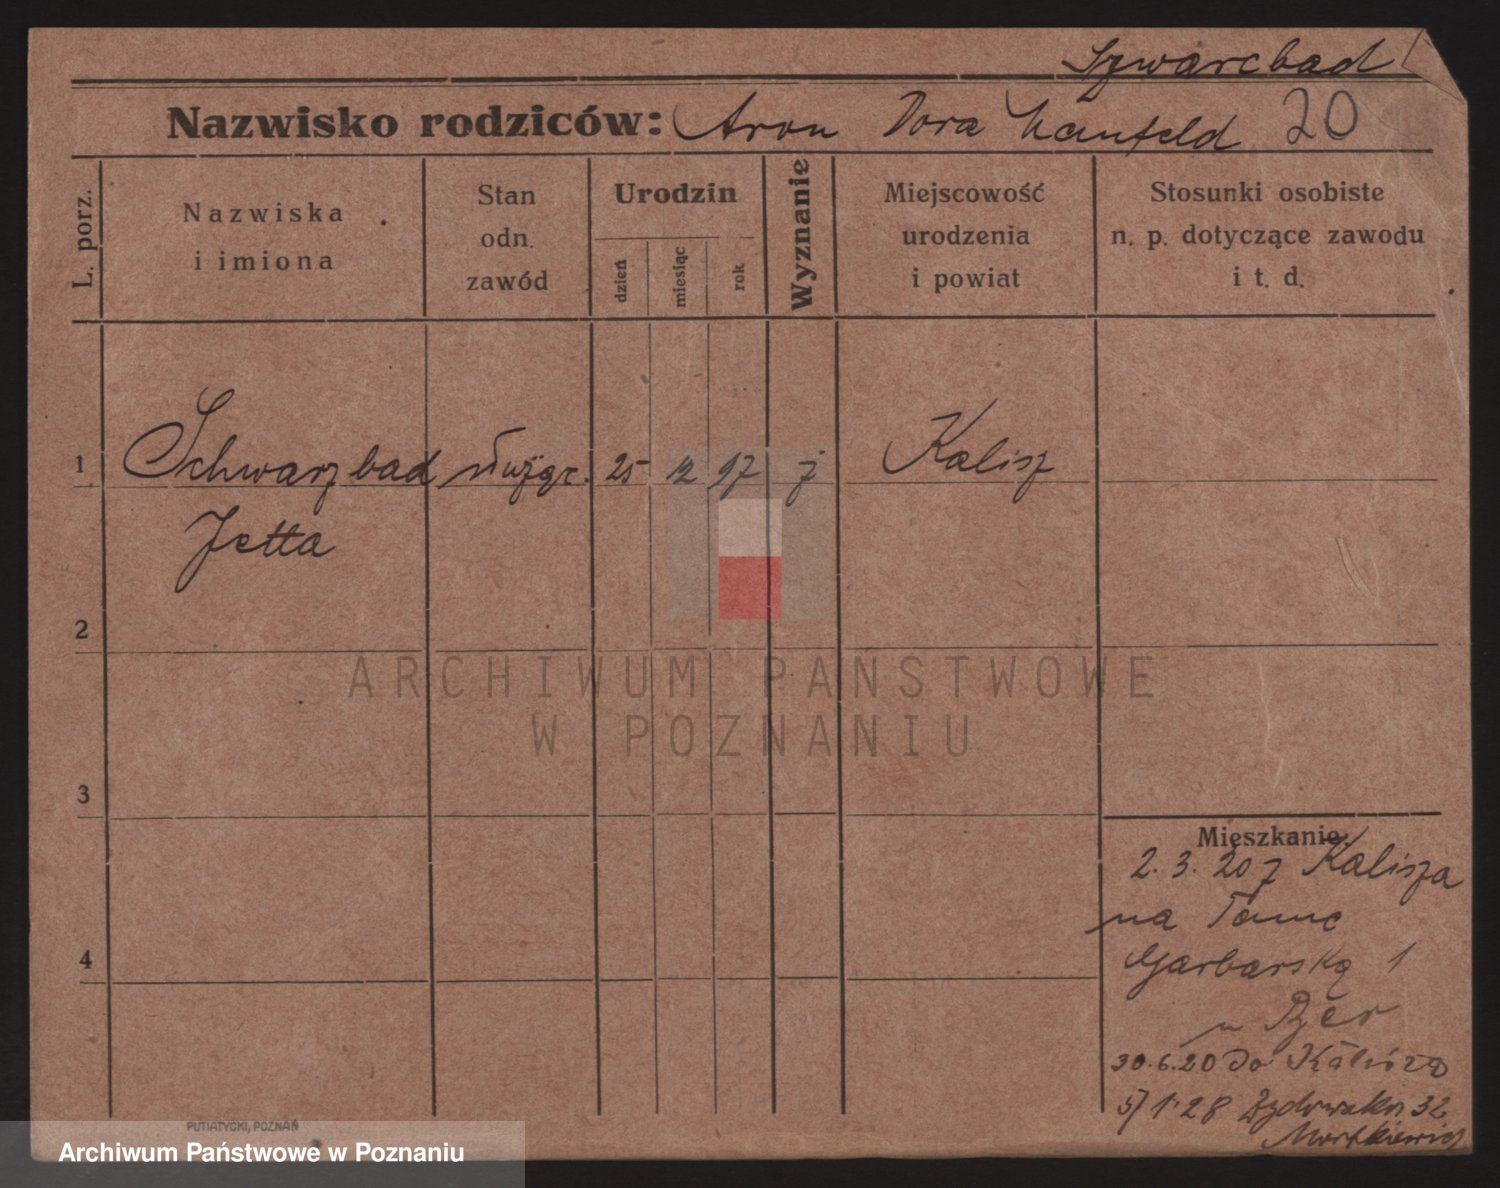 Szwarcbad
Nazwisko rodziców: Aron Dora Manfeld 20
L. porz.
Nazwiska
i imiona
Stan
odn.
zawód
Urodzin
dzień
miesiąc
rok
Wyznanie
Miejscowość
urodzenia
i powiat
Stosunki osobiste
n. p. dotyczące zawodu
i t. d.
1 Schwarzbad 25 12 97 j Kalisz
Jetta
2
ARCHIWUM PAŃSTWOWE
W POZNANIU
3
Mieszkanie
2. 3. 20 z Kalisza
na Tamę
4
Garbarską 1
u Ber
30.6.20 do Kalisza
5/1.28 Żydowska 32
Mortkiewicz
PUTIATYCKI, POZNAŃ
Archiwum Państwowe w Poznaniu